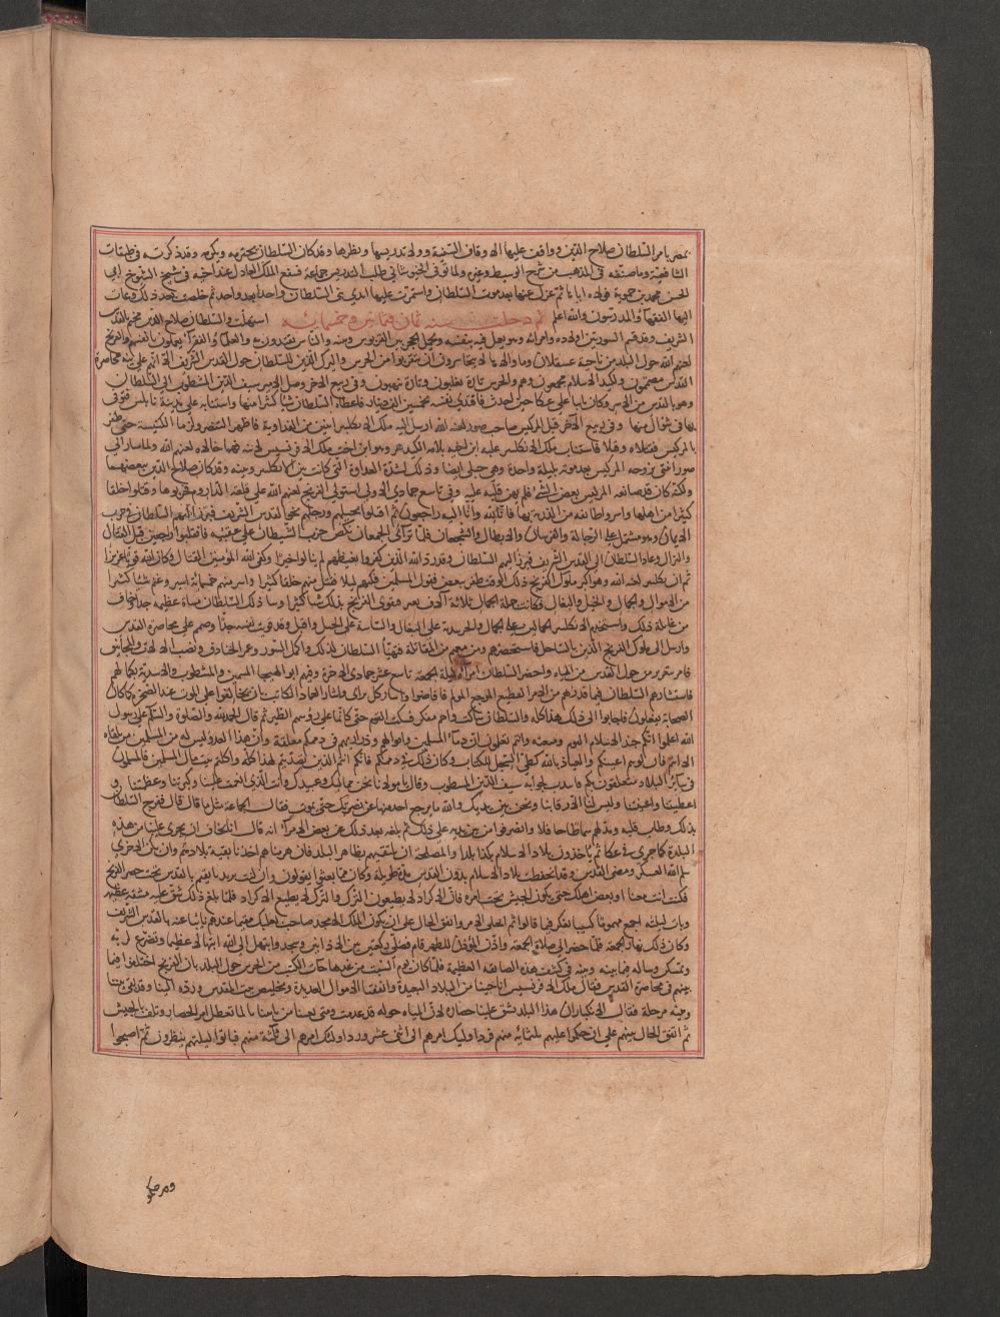 بمصر بامر السلطان صلاح الدين ووافقت عليها الاوقاف السنية وولاه تدريسها ونظرها وقد كان السلطان يحترمه ويكرمه وقد ذكرته في طبقات
الشافعية وما صنفه في المذهب من شرح الوسيط وغيره ولما توفي الخبوشاني طلب التدريس جماعة فشفع الملك العادل عند اخيه في شيخ الشيوخ ابي
الحسن محمد بن حموية فولاه اياها ثم عزل عنها بعد موت السلطان واستمرت عليها ايدي بني السلطان واحدا بعد واحد ثم خلصت بعد ذلك وعاد
اليها الفقهاء والمدرسون والله اعلم ثم دخلت سنة ثمان وثمانين وخمسمائة استهلت والسلطان صلاح الدين مخيم بالقدس
الشريف وقد قسم السور بين اولاده وامرائه وهو يعمل فيه بنفسه ويحمل الحجر بين القربوس وبينه والناس يقتدون به والعلماء والفقراء يعملون بانفسهم والفرنج
لعنهم الله حول البلد من ناحية عسقلان وما والاها لا يتجاسرون ان يتقربوا من الحرس واليزك الذين للسلطان حول القدس الشريف الا انهم على نية محاصرة
القدس مصممون ولكيد الاسلام مجمعون وهم والحرس تارة يغلبون وتارة ينهبون وفي ربيع الاخر وصل الامير سيف الدين المشطوب الى السلطان
وهو بالقدس من الاسر وكان نائبا على عكا حين اخذت فافتدى نفسه بخمسين الف دينار فاعطاه السلطان شيئا كثيرا منها واستنابه على مدينة نابلس فتوفي
بها في شوال منها وفي ربيع الاخر قتل المركيس صاحب صور لعنه الله ارسل اليه ملك الانكليز اثنين من الفداوية فاظهرا التنصر ولزما الكنيسة حتى ظفرا
بالمركيس فقتلاه وقتلا فاستناب ملك الانكليز عليها ابن اخيه بلام الكندهر وهو ابن اخت ملك الافرنسيس لابيه فهما خالاه لعنهم الله ولما سار الى
صور ابتنى بزوجة المركيس بعد موته بليلة واحدة وهي حبلى ايضا وذلك لشدة العداوة التي كانت بين الانكليز وبينه وقد كان صلاح الدين يبغضهما
ولكن كان قد صانعه المركيس بعض الشيء فلم يهن قتله عليه وفي تاسع جمادى الاولى استولى الفرنج لعنهم الله على قلعة الداروم فخربوها وقتلوا خلقا
كثيرا من اهلها واسروا طائفة من الذرية بها فانا لله وانا اليه راجعون ثم اقبلوا بخيلهم ورجلهم نحو القدس الشريف فبرز اليهم السلطان في حزب
الايمان وهو مشتمل على الرجالة والفرسان والابطال والشجعان فلما تراءى الجمعان نكص حزب الشيطان على عقبيه فانقلبوا راجعين قبل القتال
والنزال وعاد السلطان الى القدس الشريف ورد الله الذين كفروا بغيظهم لم ينالوا خيرا وكفى الله المؤمنين القتال وكان الله قويا عزيزا
ثم ان الانكليز لعنه الله وهو اكبر ملوك الفرنج ذلك الوقت ظفر ببعض قفول المسلمين فكبسهم ليلا فقتل منهم خلقا كثيرا واسر منهم خمسمائة اسير وغنم شيئا كثيرا
من الاموال والجمال والخيل والبغال فكانت جملة الجمال ثلاثة آلاف بعير وتقوى الفرنج بذلك شيئا كثيرا وساء ذلك السلطان مساءة عظيمة جدا وخاف
من غائلة ذلك واستخدم الانكليز الجمالين على الجمال والخربندية على البغال والساسة على الخيل واقبل وقد قويت نفسه جدا وصمم على محاصرة القدس
وارسل الى ملوك الفرنج الذين بالساحل فاستحضرهم ومن معهم من المقاتلة فتهيأ السلطان لذلك واكمل السور وعمر الخنادق ونصب الآلات والمجانيق
وامر بتغوير من حول القدس من المياه واحضر السلطان امراءه ليلة الجمعة تاسع عشر جمادى الاخرة وفيهم ابو الهيجاء السمين والمشطوب والاسدية بكمالهم
فاستشارهم السلطان فيما قد دهمهم من الامر الفظيع الموجع المولم فافاضوا في ذلك كل راى واشار العماد الكاتب بان يتحالفوا على الموت عند الصخرة كما كان
الصحابة يفعلون فاجابوا الى ذلك هذا كله والسلطان ساكت واجم مفكر فسكت القوم حتى كانما على رؤسهم الطير ثم قال الحمد لله والصلاة والسلام على رسول
الله اعلموا انكم جند الاسلام اليوم ومنعته وانتم تعلمون ان دماء المسلمين واموالهم وذراريهم في ذممكم معلقة وان هذا العدو ليس له من المسلمين من يلقاه
الا انتم فان لويتم اعنتكم والعياذ بالله كطي السجل للكتاب وكان ذلك في ذممكم فانكم انتم الذين تصديتم لهذا كله واكلتم بيت مال المسلمين فالمسلمون
في سائر البلاد متعلقون بكم فانتدب لجوابه سيف الدين المشطوب وقال يا مولانا نحن مماليكك وعبيدك وانت الذي انعمت علينا وكبرتنا وعظمتنا و
اعطيتنا واغنيتنا وليس لنا الا رقابنا ونحن بين يديك والله ما يرجع احد منا عن نصرتك حتى يموت فقال الجماعة مثل ما قال ففرح السلطان
بذلك وطاب قلبه ومد لهم سماطا حافلا وانصرفوا من بين يديه على ذلك ثم بلغه بعد ذلك عن بعض الامراء انه قال انا نخاف ان يجري علينا من هذه
البلدة كما جرى في عكا ثم ياخذون بلاد الاسلام بلدا بلدا والمصلحة ان نلتقيهم بظاهر البلد فان هزمناهم اخذنا بقية بلادهم وان تكن الاخرى
سلم العسكر ومضى القدس وقد انحفظت بلاد الاسلام بدون القدس مدة طويلة وكان مما بعثوا يقولون وان كنت تريد ان نقيم بالقدس تحت حصر الفرنج
فكن انت معنا او بعض اهلك حتى يكون الجيش تحت امره فان الاكراد لا يطيعون الترك والترك لا يطيعون الاكراد فلما بلغه ذلك شق عليه مشقة عظيمة
وبات ليلته اجمع مهموما كئيبا يفكر فيما قالوا ثم انجلى الامر واتفق الحال على ان يكون الملك الامجد صاحب بعلبك مقيما عندهم نائبا عنه بالقدس الشريف
وكان ذلك نهار الجمعة فلما حضر الى صلاة الجمعة واذن المؤذن للظهر قام فصلى ركعتين بين الاذانين وسجد وابتهل الى الله ابتهالا عظيما وتضرع لربه
وتمسكن وساله فيما بينه وبينه في كشف هذه الضائقة العظيمة فلما كان يوم السبت من غدها جاءت الكتب من الحرس حول البلد بان الفرنج اختلفوا فيما
بينهم في محاصرة القدس فقال ملك الافرنسيس انا جئنا من البلاد البعيدة وانفقنا الاموال العديدة في تخليص بيت المقدس ورده الينا وقد بقي بيننا
وبينه مرحلة فقال الانكليز ان هذا البلد شق علينا حصاره لان المياه حوله قد عدمت ومتى بعثنا من ياتينا بالماء تعطل امر الحصار وتلف الجيش
ثم اتفق الحال بينهم على ان حكموا عليهم ثلثمائة منهم فرد اوليك امرهم الى اثنى عشر ورد اوليك امرهم الى ثلثة منهم فباتوا ليلتهم ينظرون ثم اصبحوا